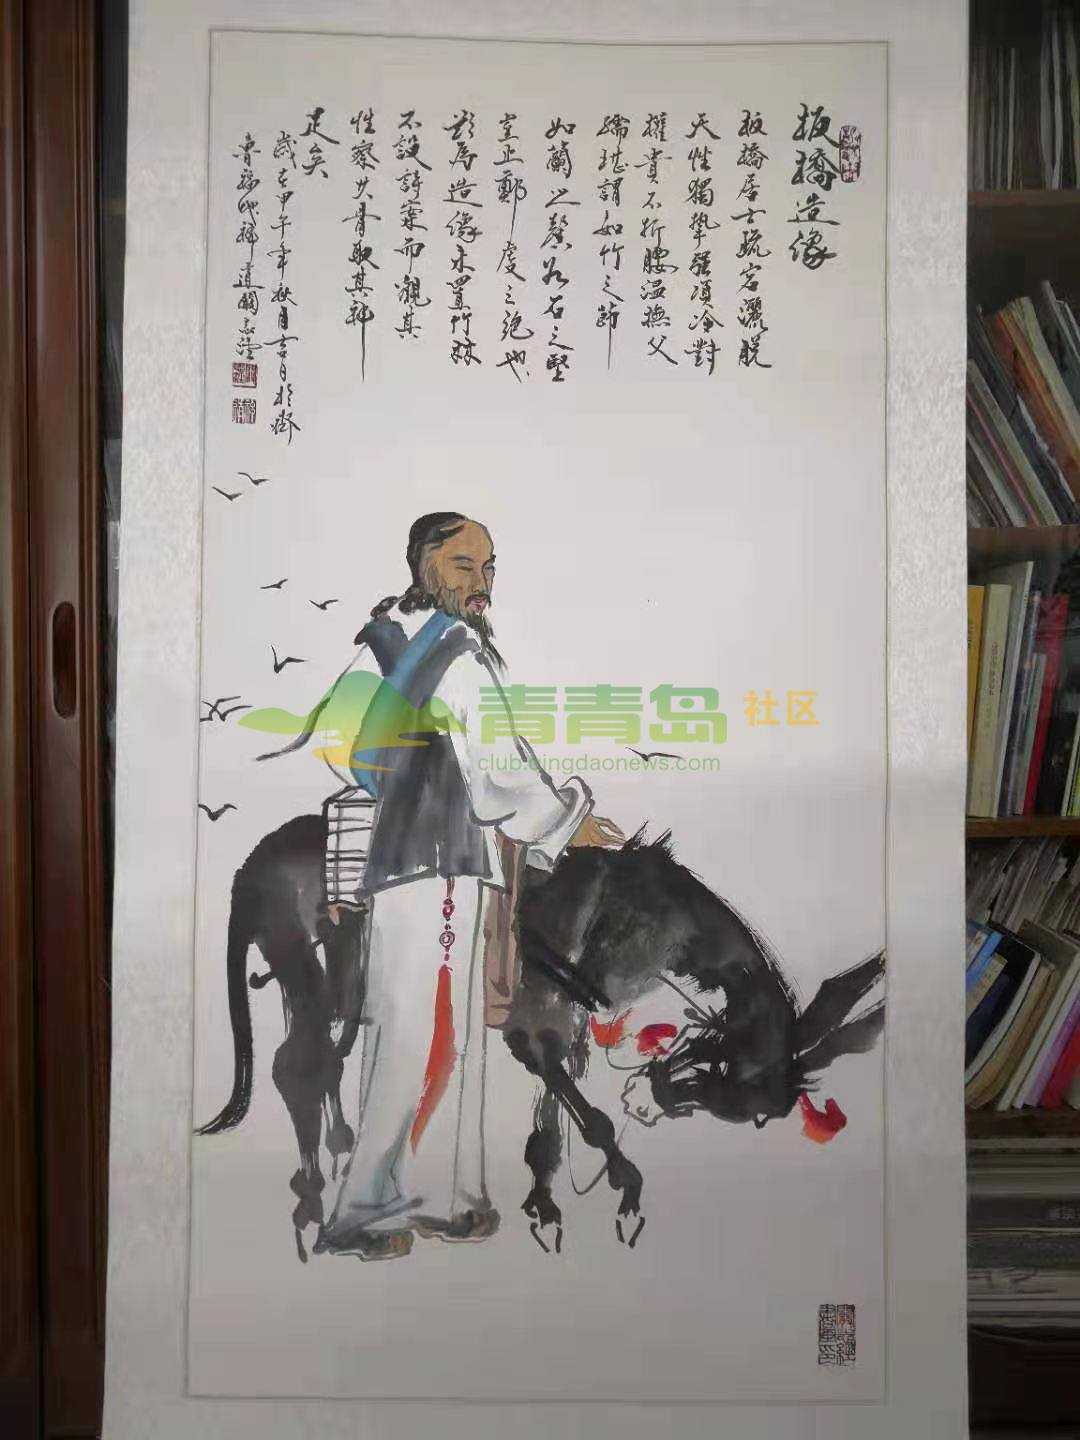 板橋造像
板橋居士疏宕灑脱
天性獨摯强項冷對
權貴不折腰温撫父
孺堪謂如竹之節
如蘭之馨如石之堅
堂正鄭虔之絶也
欲為造像未置竹林
不設詩案而觀其
性察其骨取其神
足矣
歲在甲午年秋月吉日於
青青岛社区
club.qingdaonews.com